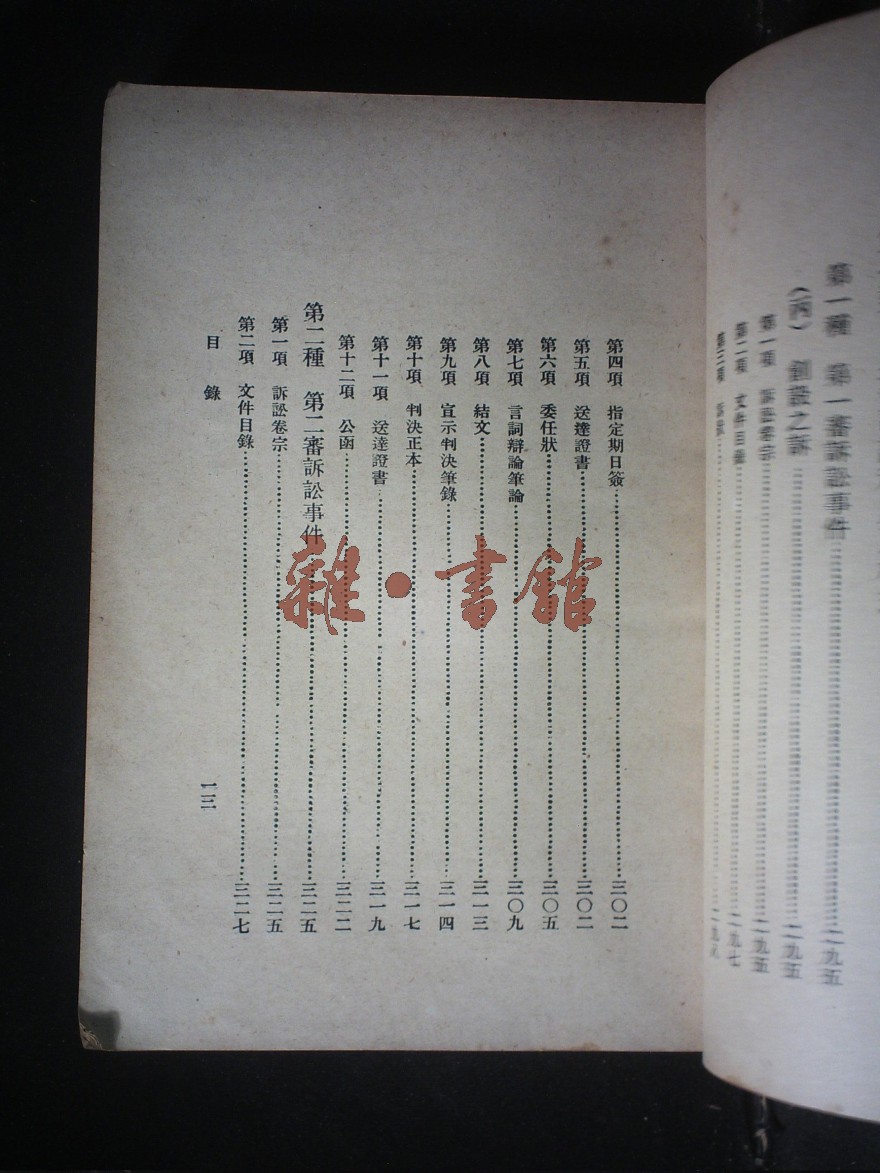 第一種　第一審訴訟事件……二九五
（丙）　創設之訴……二九五
第一項　訴訟卷宗……二九五
第二項　文件目錄……二九七
第三項　訴狀……二九八
第四項　指定期日簽……三〇二
第五項　送達證書……三〇二
第六項　委任狀……三〇五
第七項　言詞辯論筆論……三〇九
第八項　結文……三一三
第九項　宣示判決筆錄……三一四
第十項　判決正本……三一七
第十一項　送達證書……三一九
第十二項　公函……三二二
第二種　第二審訴訟事件……三二五
第一項　訴訟卷宗……三二五
第二項　文件目錄……三二七
目錄　一三
雜·書館